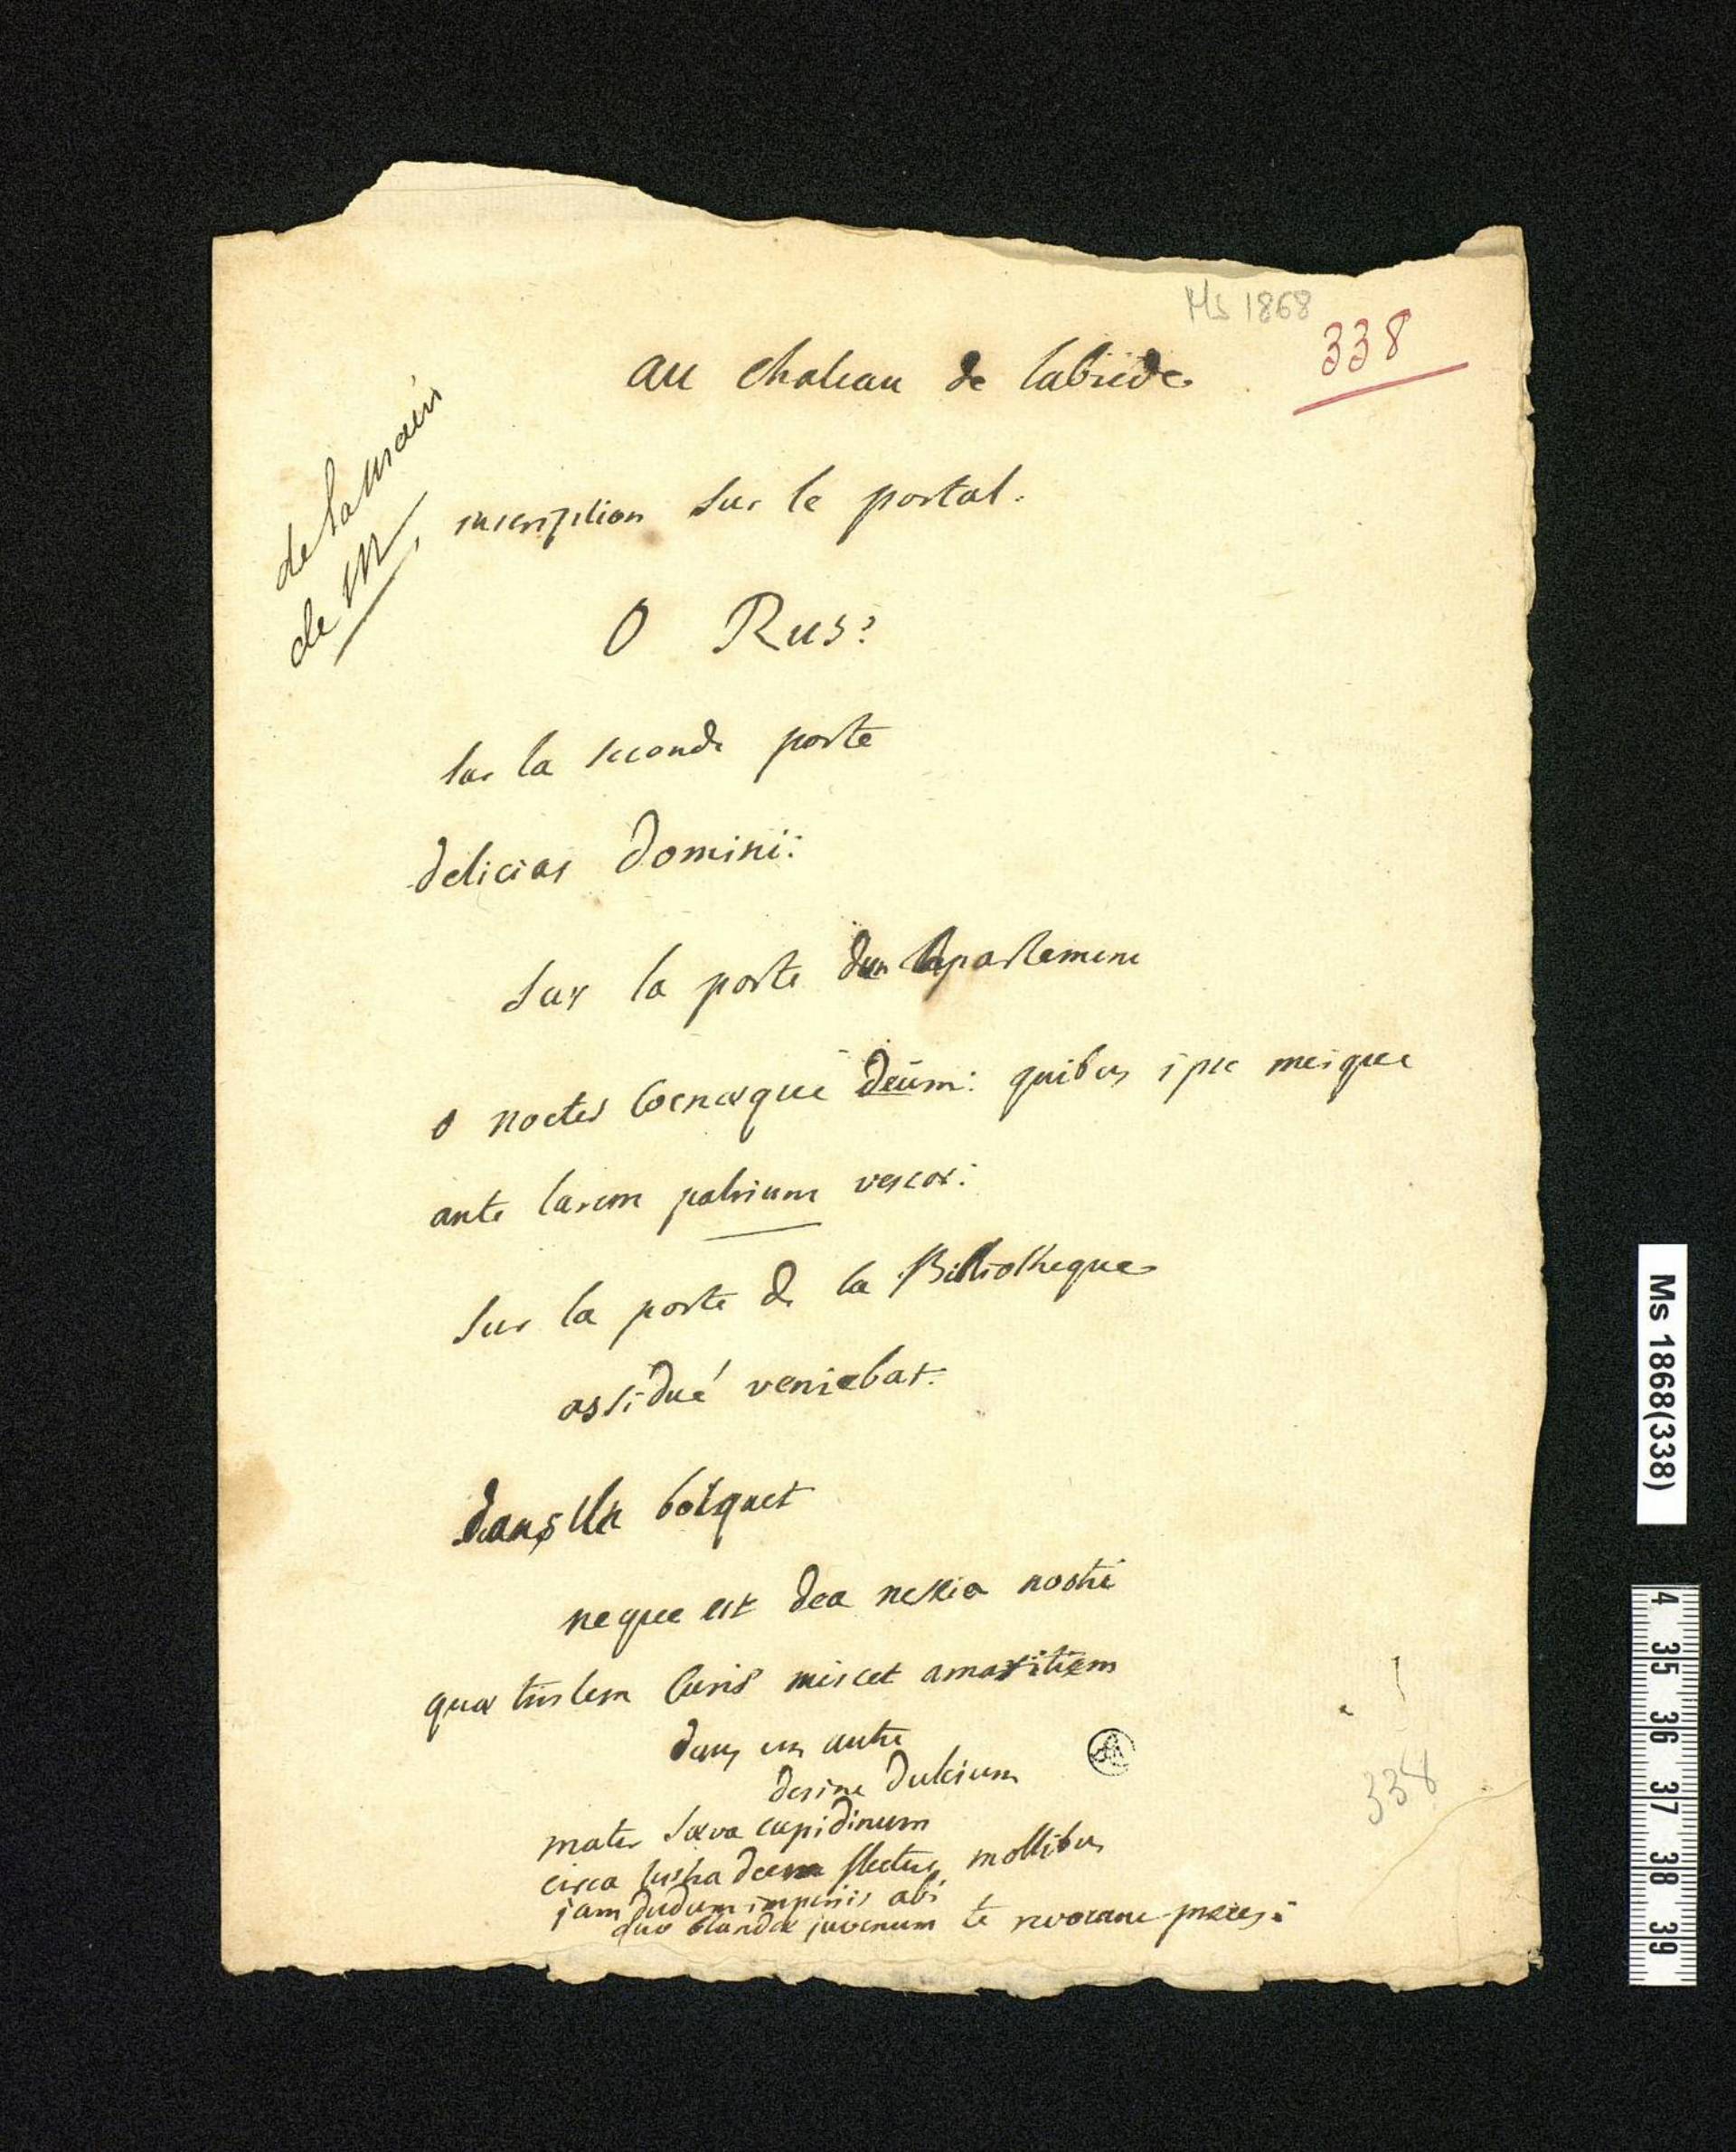 Ms 1868
338
au chateau de labrede
de la main
de M
inscription sur le portal.
O Rus?
sur la seconde porte
delicias domini:
sur la porte dun apartement
o noctes coenæque deûm: quibus ipse meique
ante larem patrium vescor:
sur la porte de la Bibliotheque
assidué veniebat.
dans un bosquet
neque est dea nescia nostri
quæ tristem curis miscet amaritiem
dans un antre
desine dulcium
mater sæva cupidinum
circa lustra decem flectere mollibus
jam dudum imperiis abi
quo blandæ juvenum te revocant preces:
338
Ms 1868(338)
4 35 36 37 38 39